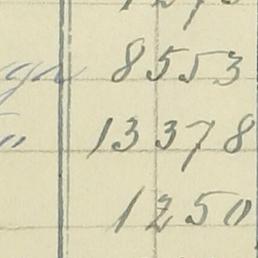 8553
13378
1250